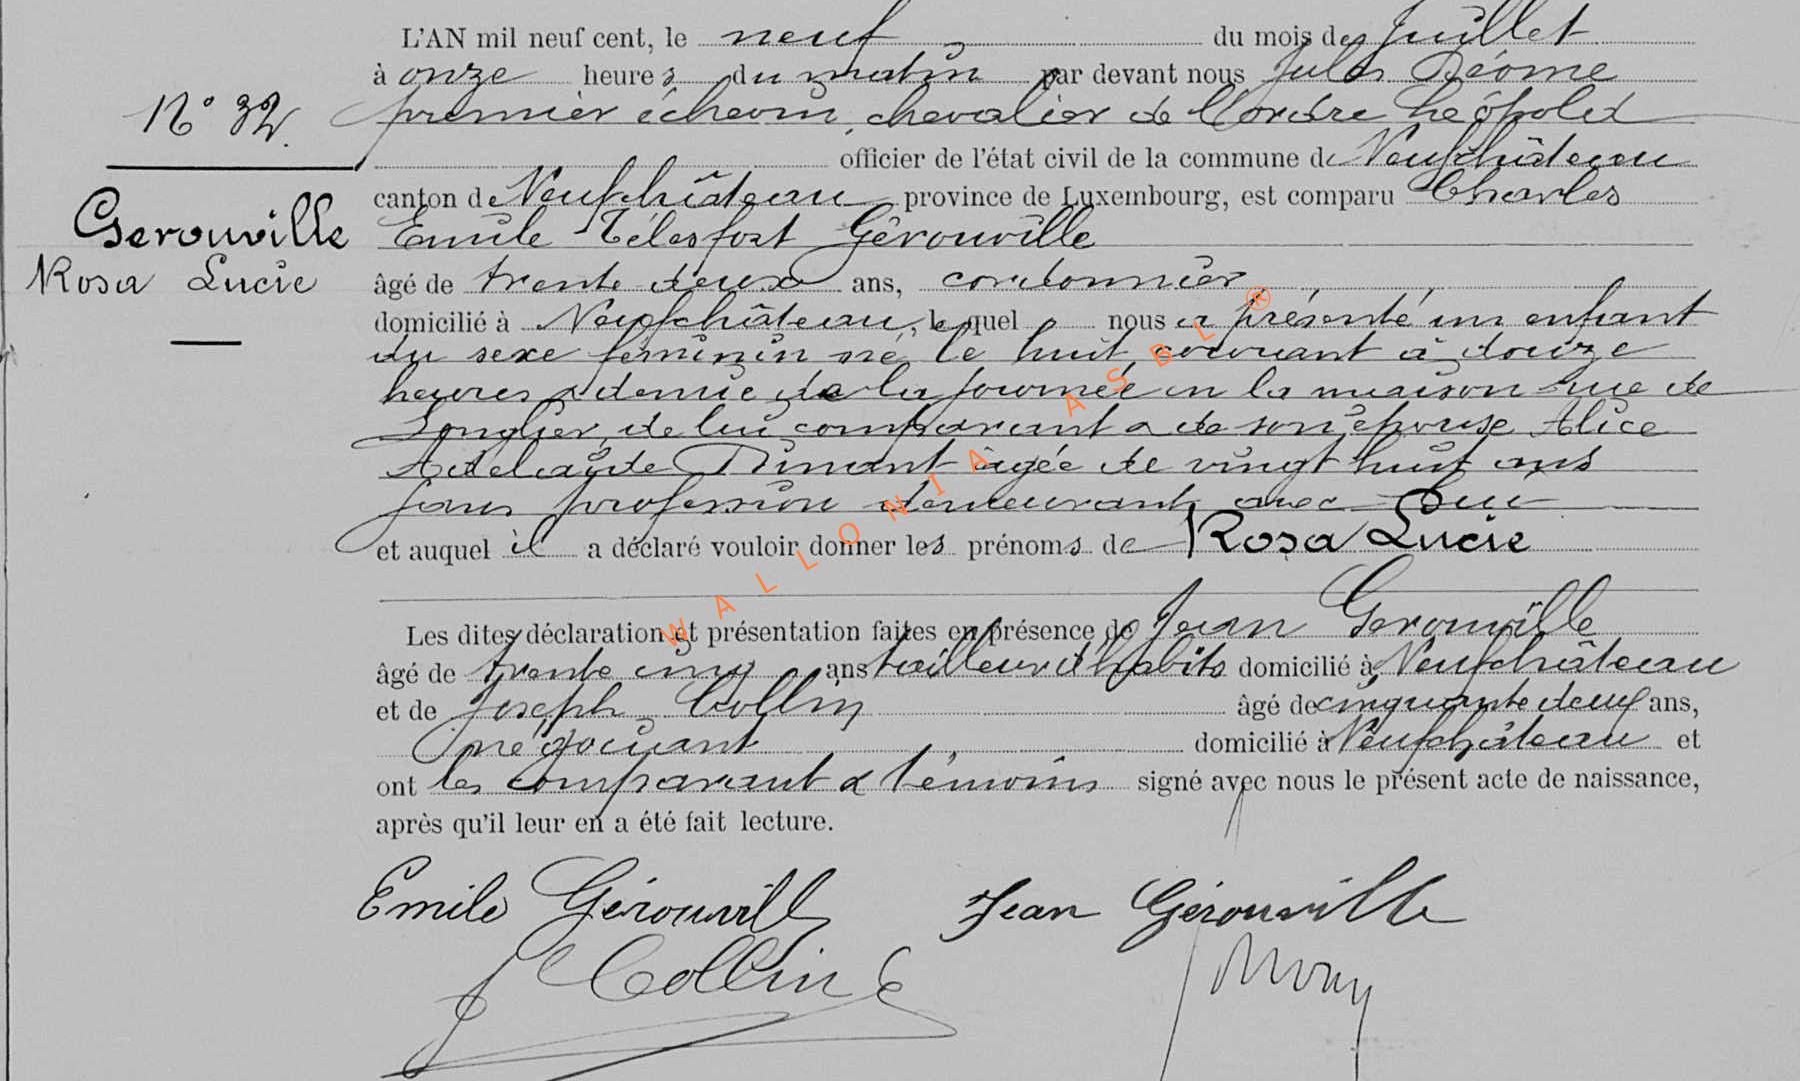 L'AN mil neuf cent, le neuf du mois de Juillet
à onze heures du matin par devant nous Jules
N° 32. premier échevin, chevalier de l'ordre Léopold
officier de l'état civil de la commune de Neufchâteau
canton de Neufchâteau province de Luxembourg, est comparu Charles
Gerouville Emile Télesfort Gérouville
Rosa Lucie âgé de trente deux ans, cordonnier
domicilié à Neufchâteau, lequel nous a présenté un enfant
du sexe féminin né le huit courant à douze
heures & demie de la journée en la maison rue de
Longlier, de lui comparant & de son épouse Alice
Adelaïde Dinant âgée de vingt huit ans
sans profession demeurant avec lui
et auquel il a déclaré vouloir donner les prénoms de Rosa Lucie
Les dites déclaration et présentation faites en présence de Jean Gerouville
âgé de trente cinq ans tailleur d'habits domicilié à Neufchâteau
et de Joseph Collin âgé de cinquante deux ans,
négociant domicilié à Neufchâteau et
ont les comparant & témoins signé avec nous le présent acte de naissance,
après qu'il leur en a été fait lecture.
Emile Gérouville Jean Gérouville
J Collin
WALLONIA ASBL ®